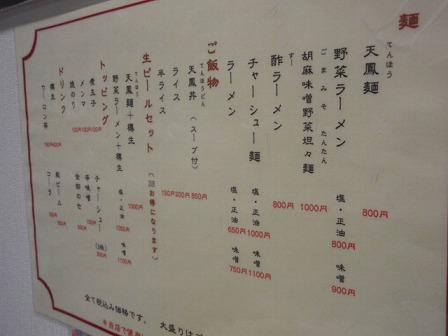 麺
てんほう
天鳳麺 800円
野菜ラーメン 塩・正油 800円 味噌 900円
ごまみそ たんたん
胡麻味噌野菜坦々麺 1000円
す
酢ラーメン 800円
チャーシュー麺 塩・正油 1000円 味噌 1100円
ラーメン 塩・正油 650円 味噌 750円
ご飯物
てんほうどん
天鳳丼(スープ付) 850円
ライス 200円
半ライス 150円
生ビールセット(お得になります)
天鳳麺+樽生 1000円
野菜ラーメン+樽生 塩・正油 味噌 1100円
トッピング
煮玉子 100円
メンマ 100円
焼のり 100円
チャーシュー
辛味噌
全部のせ
ドリンク
樽生
ウーロン茶
瓶ビール
コーラ
全て税込み価格です。 大盛りは